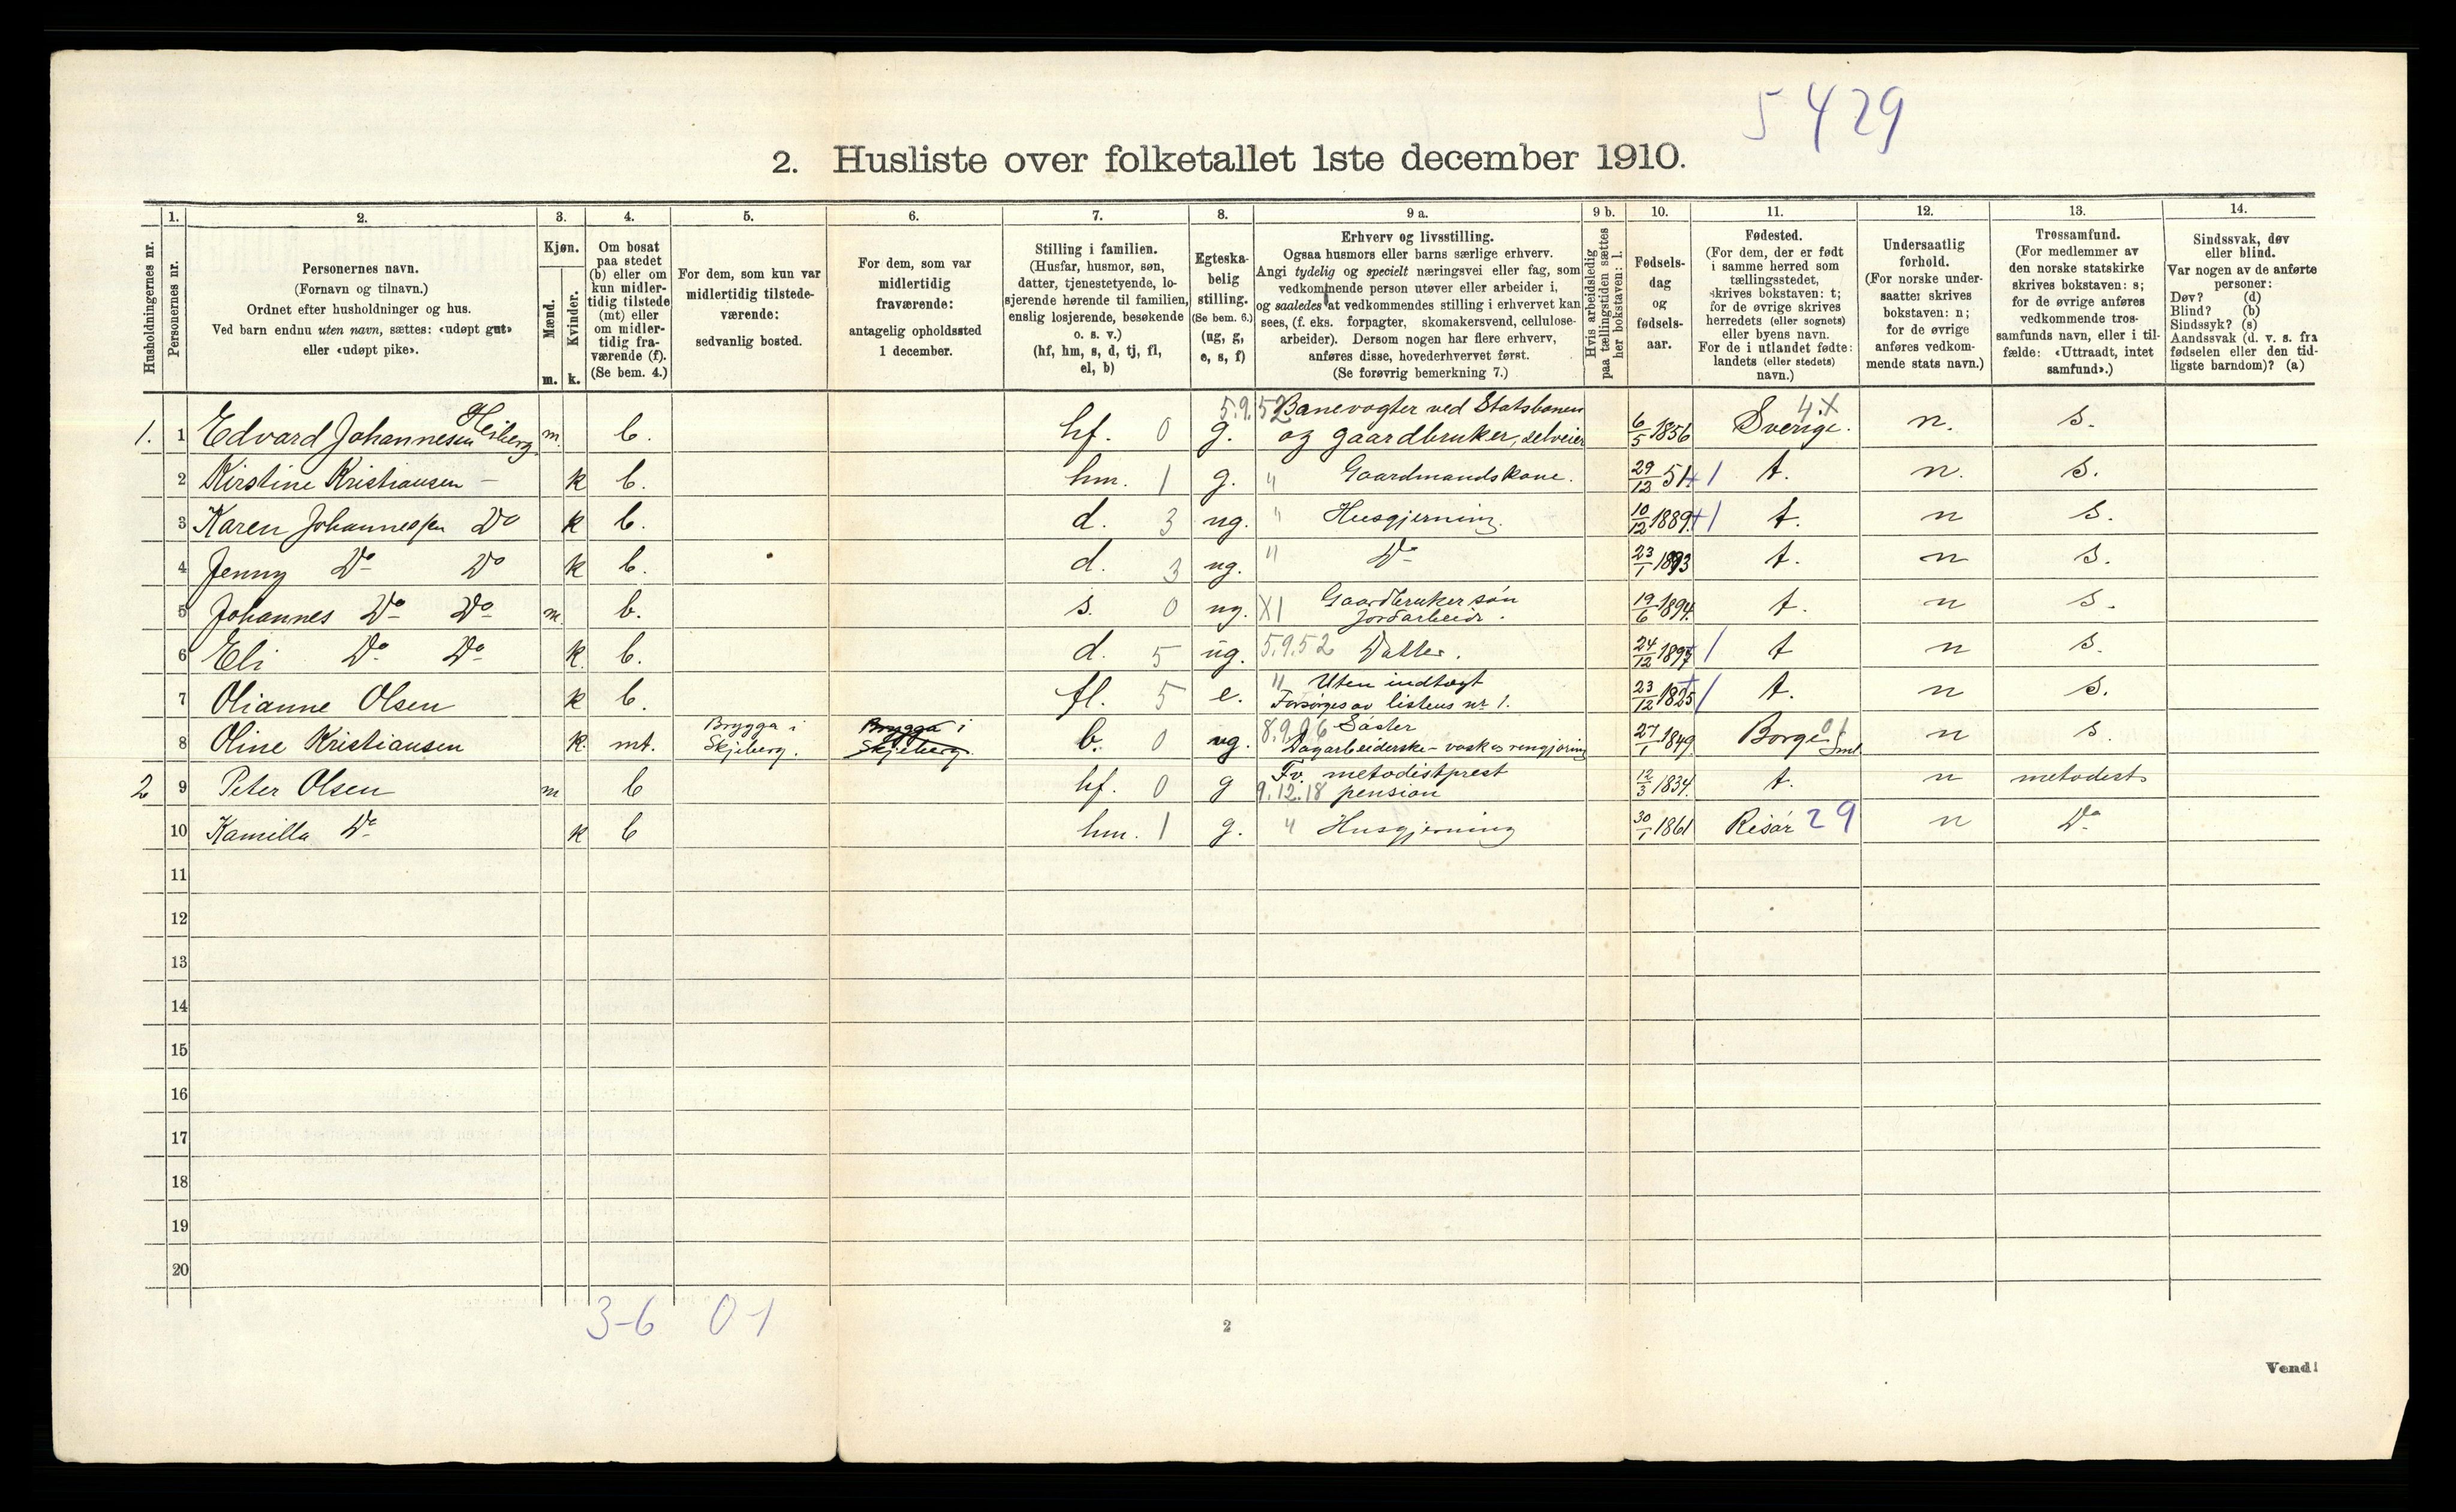 5429
2. Husliste over folketallet 1ste december 1910.
Husholdningernes nr.
1.
Personernes nr.
2.
Personernes navn.
(Fornavn og tilnavn.)
Ordnet efter husholdninger og hus.
Ved barn endnu uten navn, sættes: «udøpt gut»
eller «udøpt pike».
3.
Kjøn.
Mænd.
m.
Kvinder.
k.
4.
Om bosat
paa stedet
(b) eller om
kun midler-
tidig tilstede
(mt) eller
om midler-
tidig fra-
værende (f).
(Se bem. 4.)
5.
For dem, som kun var
midlertidig tilstede-
værende:
sedvanlig bosted.
6.
For dem, som var
midlertidig
fraværende:
antagelig opholdssted
1 december.
7.
Stilling i familien.
(Husfar, husmor, søn,
datter, tjenestetyende, lo-
sjerende hørende til familien,
enslig losjerende, besøkende
o. s. v.)
(hf, hm, s, d, tj, fl,
el, b)
8.
Egteska-
belig
stilling.
(Se bem. 6.)
(ug, g,
e, s, f)
9 a.
Erhverv og livsstilling.
Ogsaa husmors eller barns særlige erhverv.
Angi tydelig og specielt næringsvei eller fag, som
vedkommende person utøver eller arbeider i,
og saaledes at vedkommendes stilling i erhvervet kan
sees, (f. eks. forpagter, skomakersvend, cellulose-
arbeider). Dersom nogen har flere erhverv,
anføres disse, hovederhvervet først.
(Se forøvrig bemerkning 7.)
9 b.
Hvis arbeidsledig
paa tællingstiden sættes
her bokstaven: l.
10.
Fødsels-
dag
og
fødsels-
aar.
11.
Fødested.
(For dem, der er født
i samme herred som
tællingsstedet,
skrives bokstaven: t;
for de øvrige skrives
herredets (eller sognets)
eller byens navn.
For de i utlandet fødte:
landets (eller stedets)
navn.)
12.
Undersaatlig
forhold.
(For norske under-
saatter skrives
bokstaven: n;
for de øvrige
anføres vedkom-
mende stats navn.)
13.
Trossamfund.
(For medlemmer av
den norske statskirke
skrives bokstaven: s;
for de øvrige anføres
vedkommende tros-
samfunds navn, eller i til-
fælde: «Uttraadt, intet
samfund».)
14.
Sindssvak, døv
eller blind.
Var nogen av de anførte
personer:
Døv? (d)
Blind? (b)
Sindssyk? (s)
Aandssvak (d. v. s. fra
fødselen eller den tid-
ligste barndom)? (a)
1. 1 Edvard Johannesen Heiberg m. b. hf. 0 g. 5.9.52 Banevogter ved Statsbanen og gaardbruker, selveier 6/5 1856 Sverige. 4.X n. s.
2 Kirstine Kristiansen — k b. hm. 1 g. " Gaardmandskone. 29/12 51 + 1 t. n. s.
3 Karen Johannessen Do k b. d. 3 ug. " Husgjerning. 10/12 1889 + 1 t. n s.
4 Jenny Do Do k b. d. 3 ug. " Do 23/1 1893 t. n s.
5 Johannes Do Do m. b. s. 0 ug. X1 Gaardbruker søn Jordarbeide. 19/6 1894. t. n s.
6 Eli Do Do k. b. d. 5 ug. 5.9.52 Datter. 24/12 1897 1 t n s.
7 Olianne Olsen k b. fl. 5 e. " Uten indtægt Forsørges av listens nr 1. 23/12 1825 1 t. n s.
8 Oline Kristiansen k. mt. Brygga i Skjeberg. Brygga i Skjeberg. b. 0 ug. 8.9.96 Söster Dagarbeiderske - vask og rengjøring 27/1 1849. Borge Sml. 01 n s.
2 9 Peter Olsen m b hf. 0 g Fv. metodistprest 9.12.18 pension 12/3 1834. t. n metodist
10 Kamilla Do k b hm. 1 g. " Husgjerning 30/1 1861 Risör 29 n Do
11
12
13
14
15
16
17
18
19
20
3-6 0-1
2
Vend!